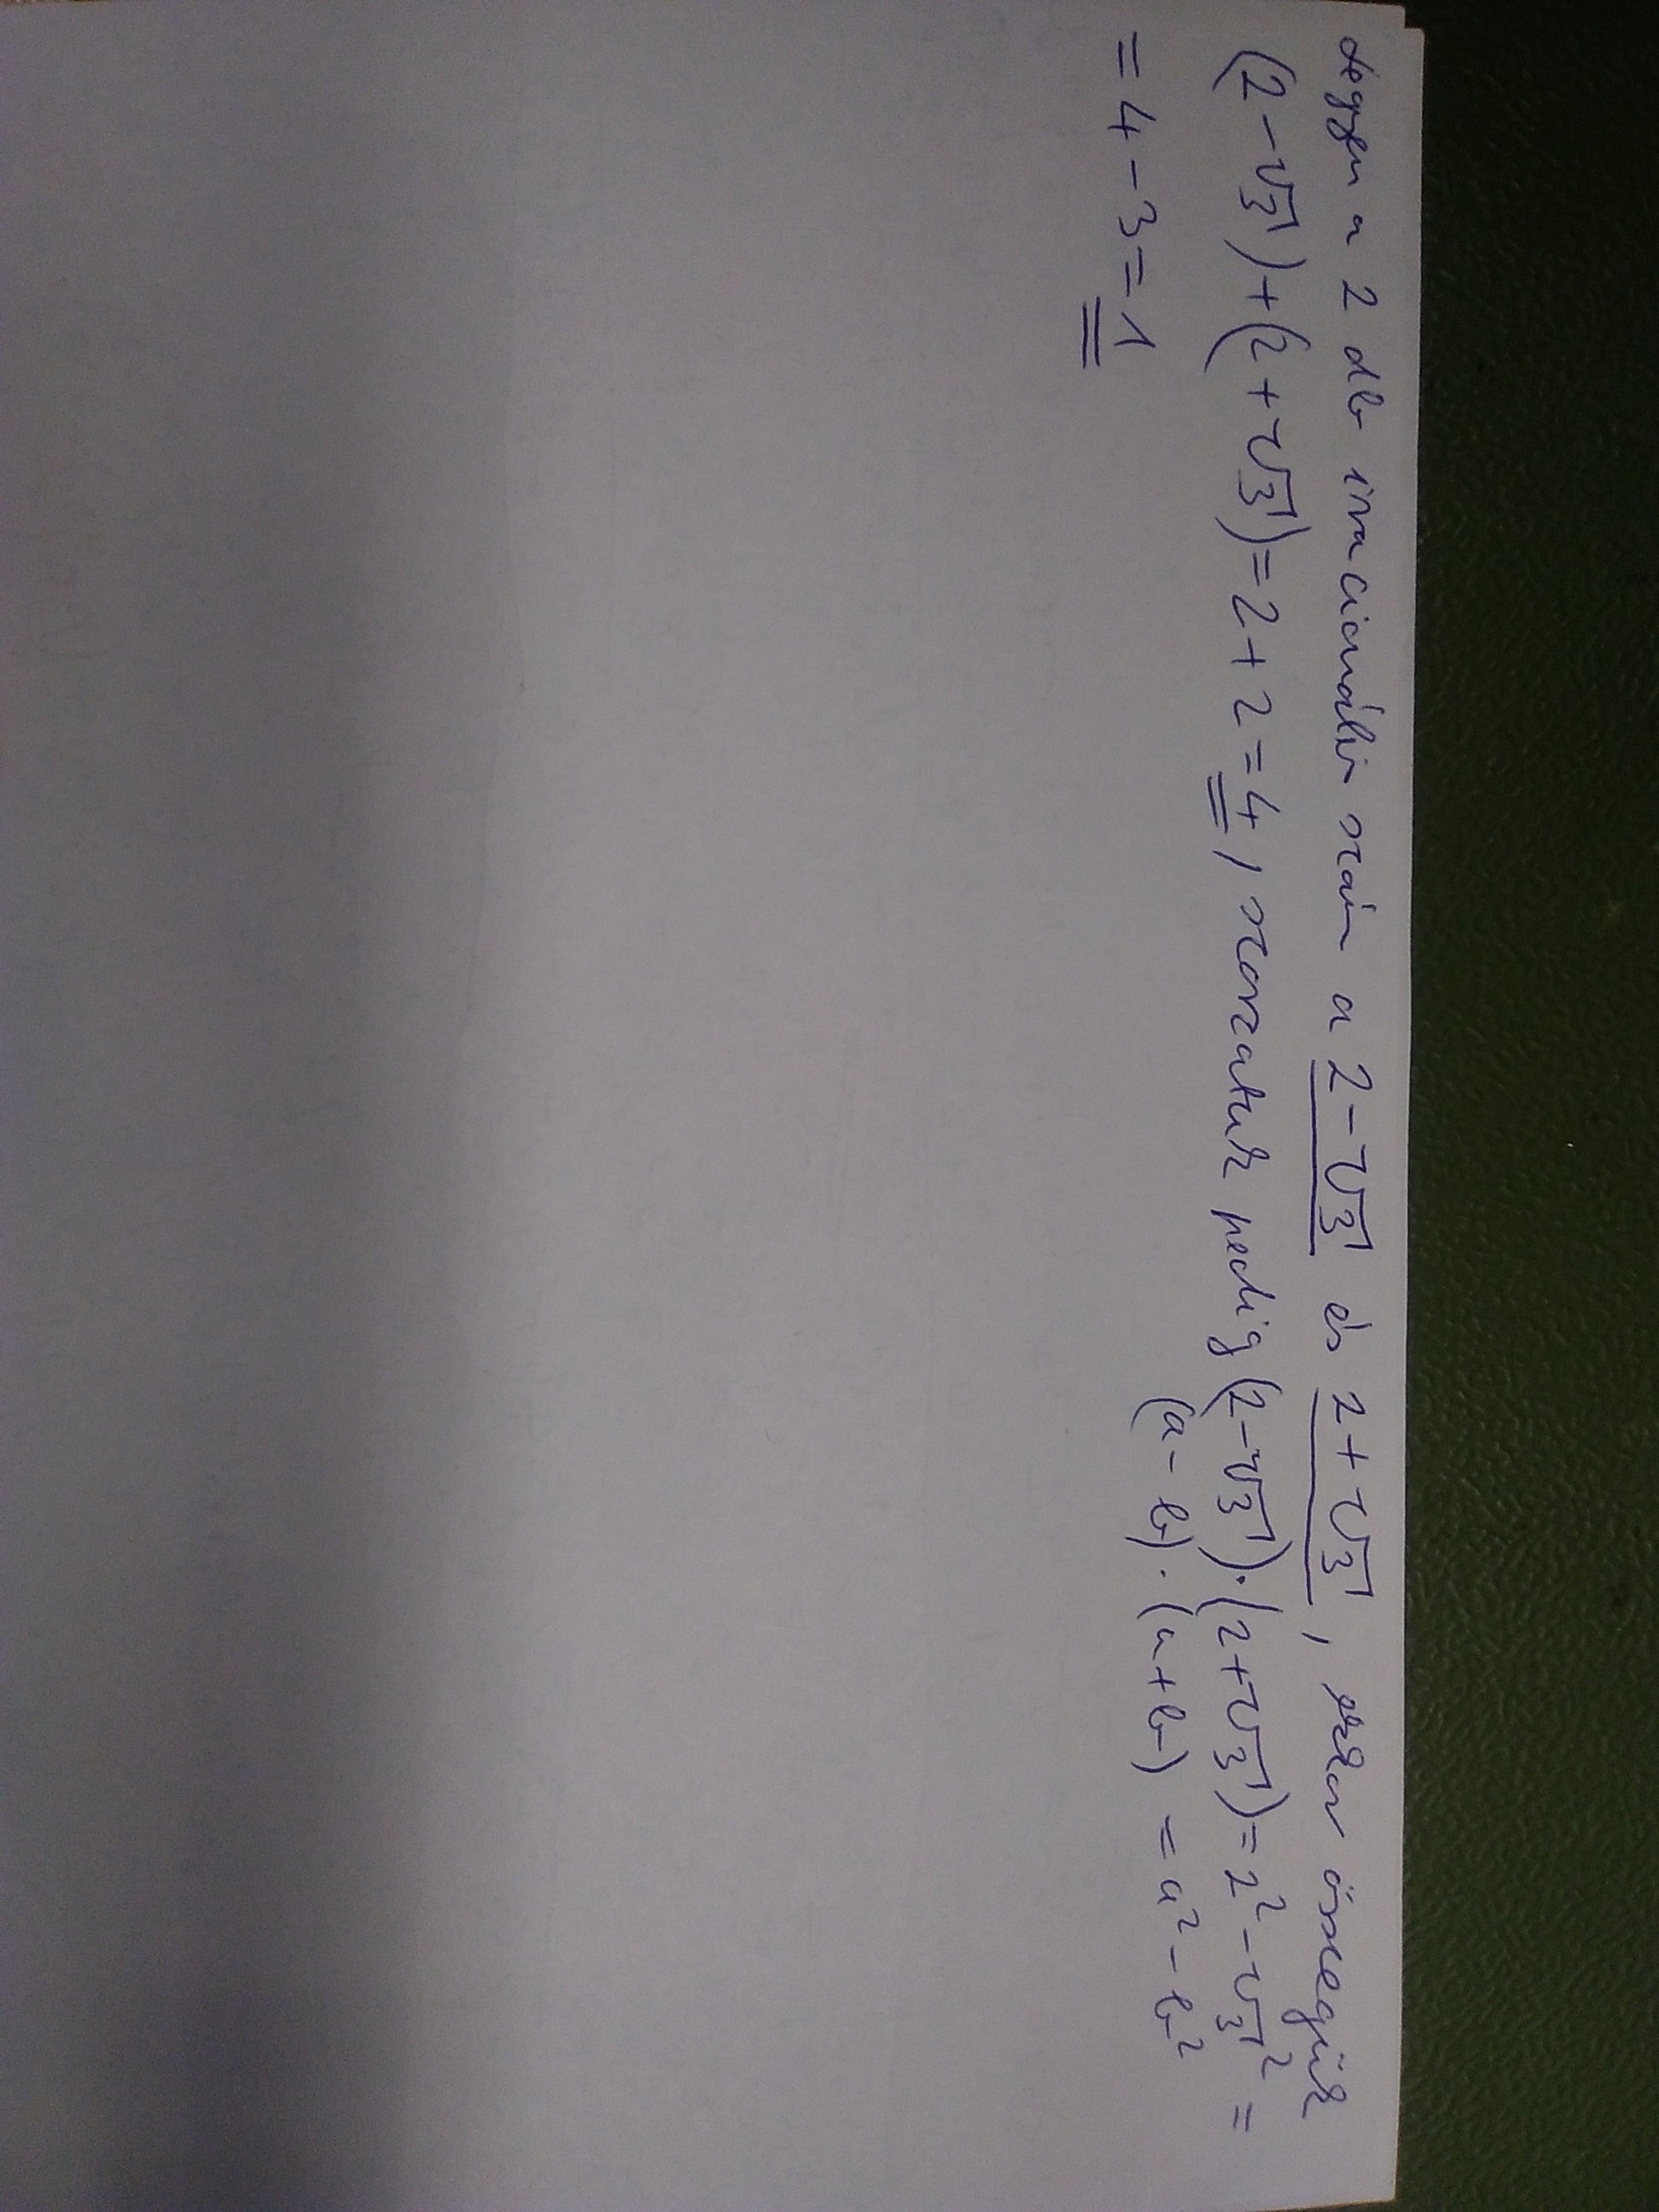 legyen a 2 db irracionális szám a 2-√3 és 2+√3, ekkor összegük
(2-√3)+(2+√3)=2+2=4, szorzatuk pedig (2-√3)·(2+√3)=2²-√3²=
(a-b)·(a+b) = a²-b²
=4-3=1